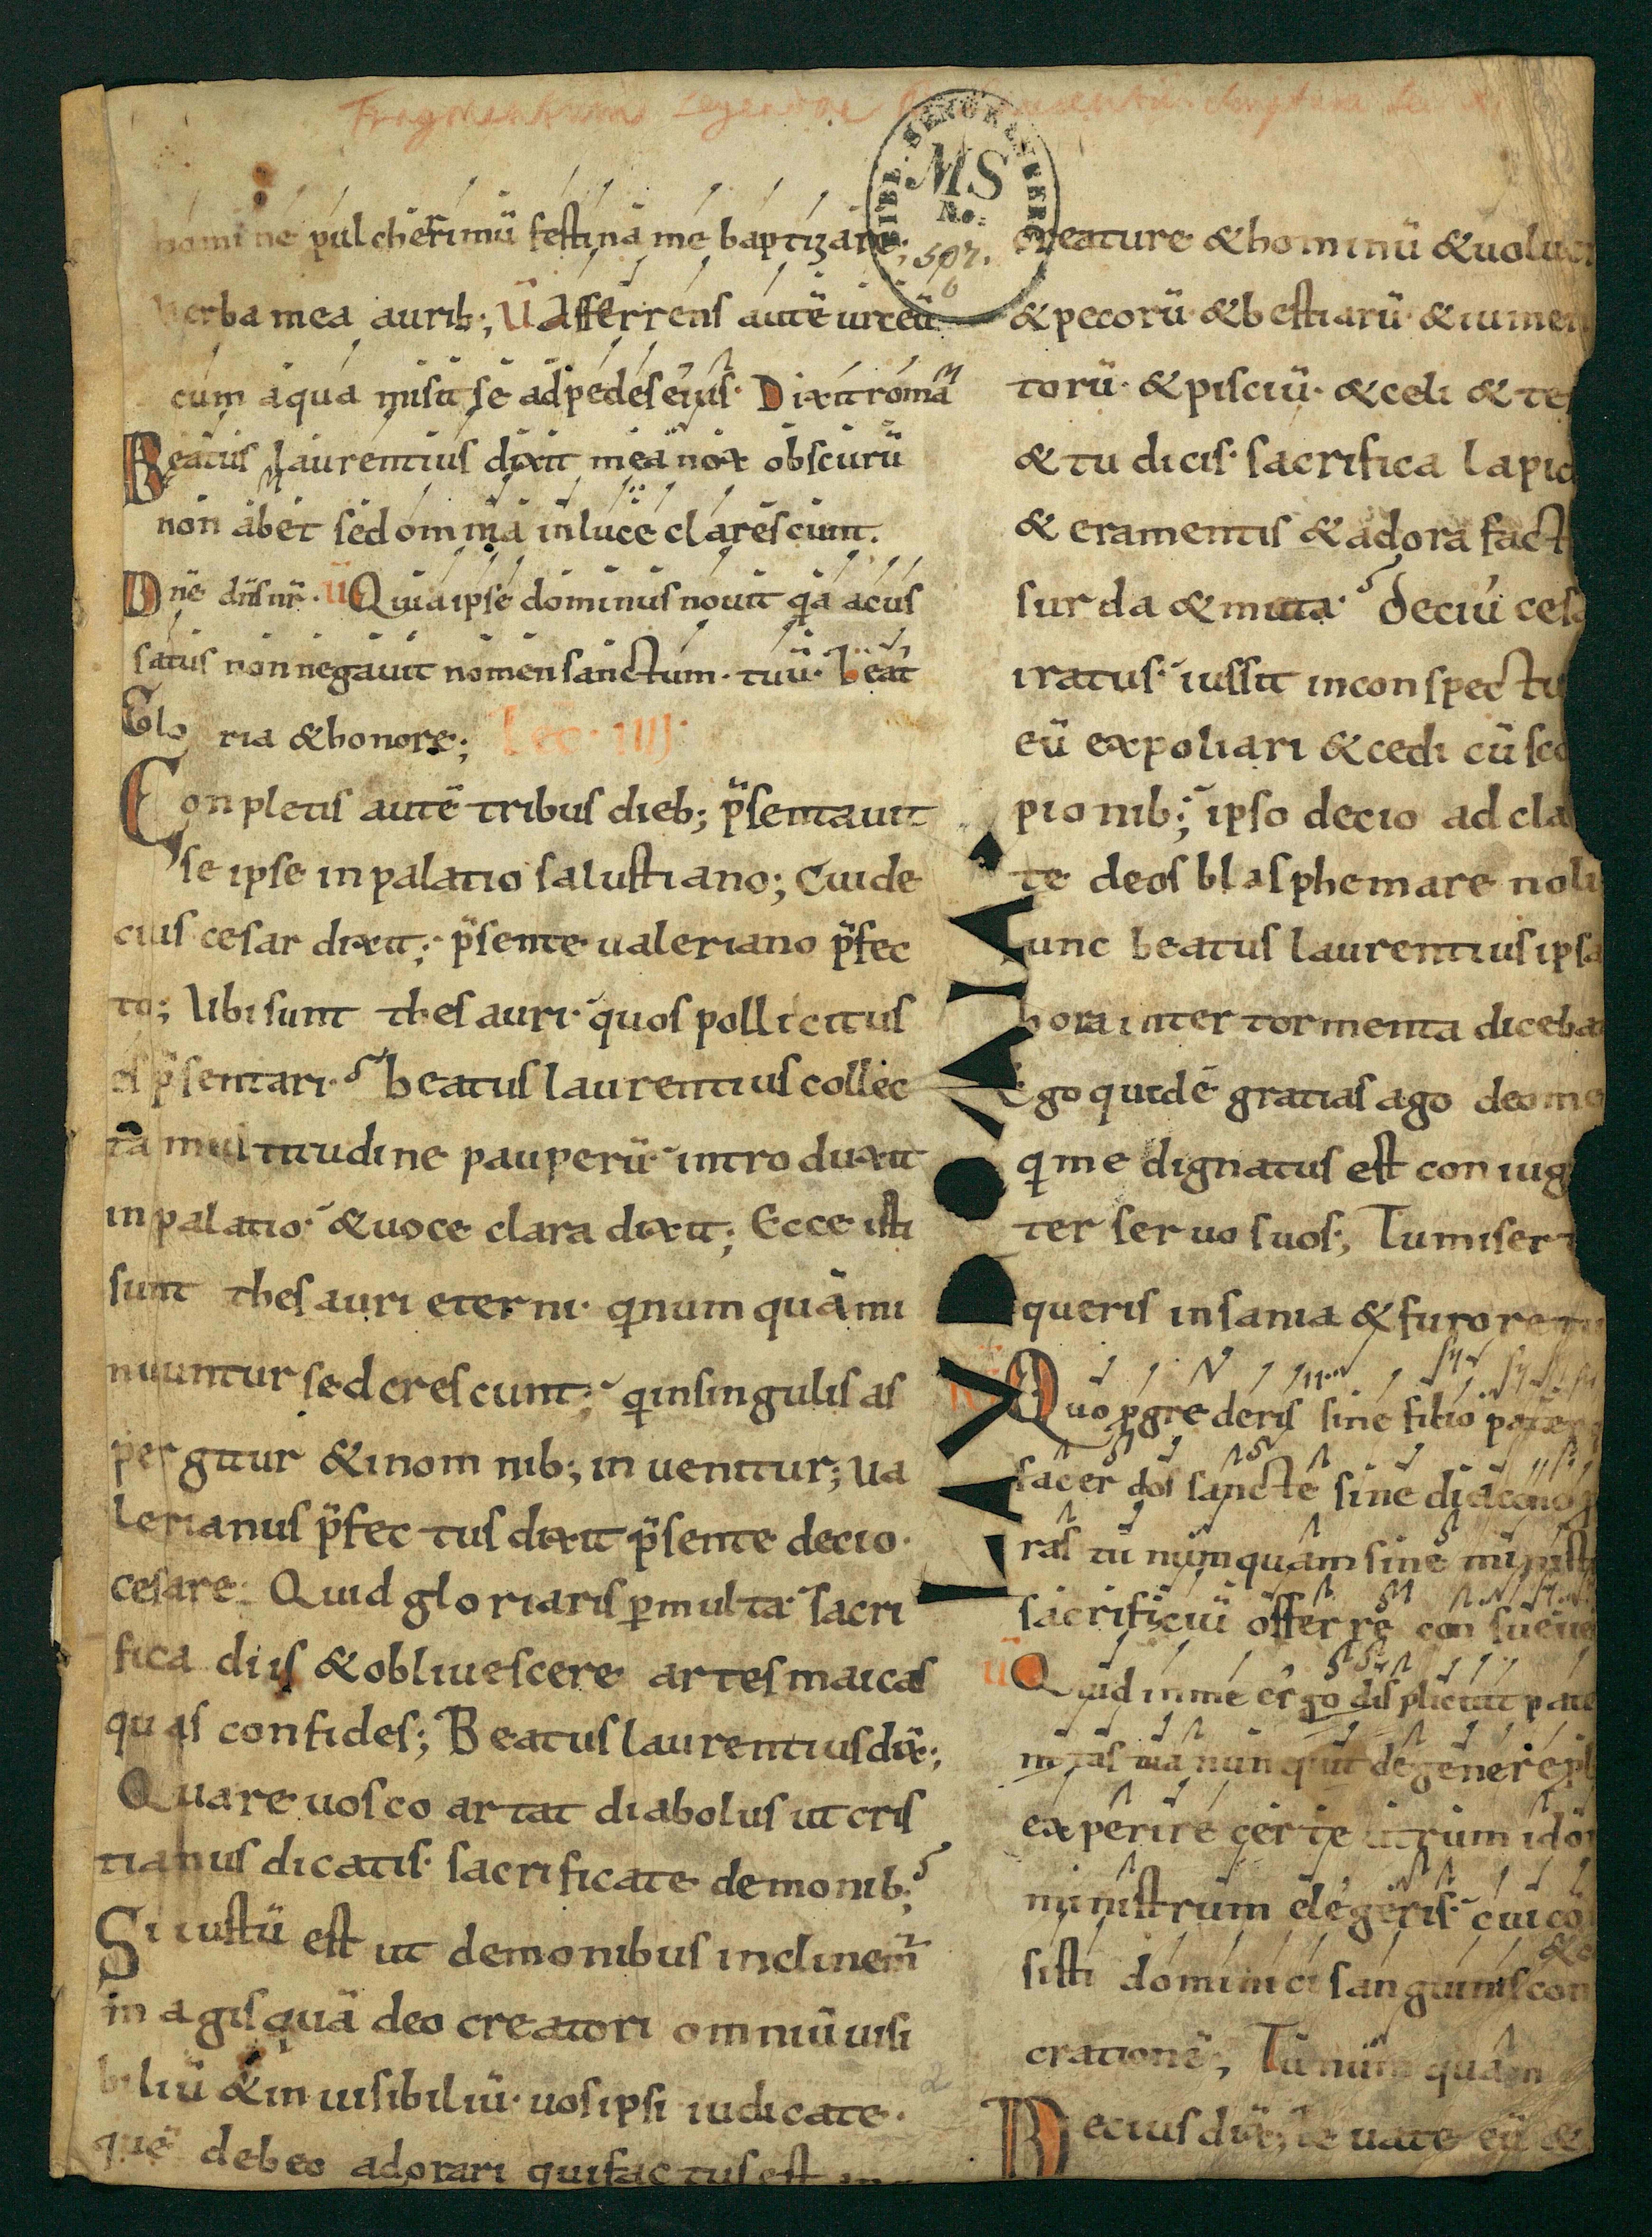 Fragmentum
BIBL.
MS
No.
507.
6
homine pulcherrimū festina me baptizare;
Verba mea aurib; V̄ Afferrens autē urceū
cum aqua misit se ad pedes eius· Dixit romaꝰ
Beatus laurentius dixit mea nox obscurū
non abet sed omnia in luce clarescunt.
Dn̄e d̄s nr̄· V̄ Quia ipse dominus nouit q̇a acus
satus non negauit nomen sanctum· tuū· beat
Glo ria & honore; Lec· IIII·
Conpletis autē tribus dieb; p̄sentauit
se ipse in palatio salustiano; Cui de
cius cesar dixit; p̄sente ualeriano p̄fec
to; Ubi sunt thesauri· quos pollicitus
es p̄sentari· beatus laurentius collec
tā multitudine pauperū introduxit
in palatio· & uoce clara dixit; Ecce isti
sunt thesauri eterni· q̇ numquā mi
nuuntur sed crescunt; q̇ in singulis as
pergitur & in omnib; inuenitur; ua
lerianus p̄fectus dixit p̄sente decio·
cesare· Quid gloriaris ꝑ multa· sacri
fica diis & obliuescere artes maicas
quas confides; Beatus laurentius dix̄;
Quare uos coartat diabolus ut cris
tianus dicatis· sacrificate demonib;
Si iustū est ut demonibus inclinem̄
magis quā deo creatori omniū uisi
biliū & inuisibiliū· uos ipsi iudicate·
quē debeo adorari qui factus est
creature & hominū & uoluc
& pecorū· & bestiarū· & iumen
torū· & pisciū· & celi & te
& tu dicis· sacrifica lapid
& eramentis & adora fact
surda & muta· Deciu cesa
iratus· iussit in conspectu
eū expoliari & cedi cū sco
pionib; ipso decio ad cla
te deos blasphemare noli
Tunc beatus laurentius ipsa
hora inter tormenta diceba
Ego quidē gratias ago deo me
q̇ me dignatus est coniug
ter seruo suos; Tu miser
queris insania & furore tu
LAVDO/AIA
R̄ Quo ꝓgrederis sine filio pater
sacerdos sancte sine diacono
ras tu numquam sine minist
sacrificiū offerre consueue
V̄ Quid in me ergo displicuit pate
nitas tua nunquit degenere
experire certe utrum ido
ministrum elegeris· cui co
sisti dominici sanguinis con
&c
cratione; Tu numquam
Decius dix̄; leuate eū &